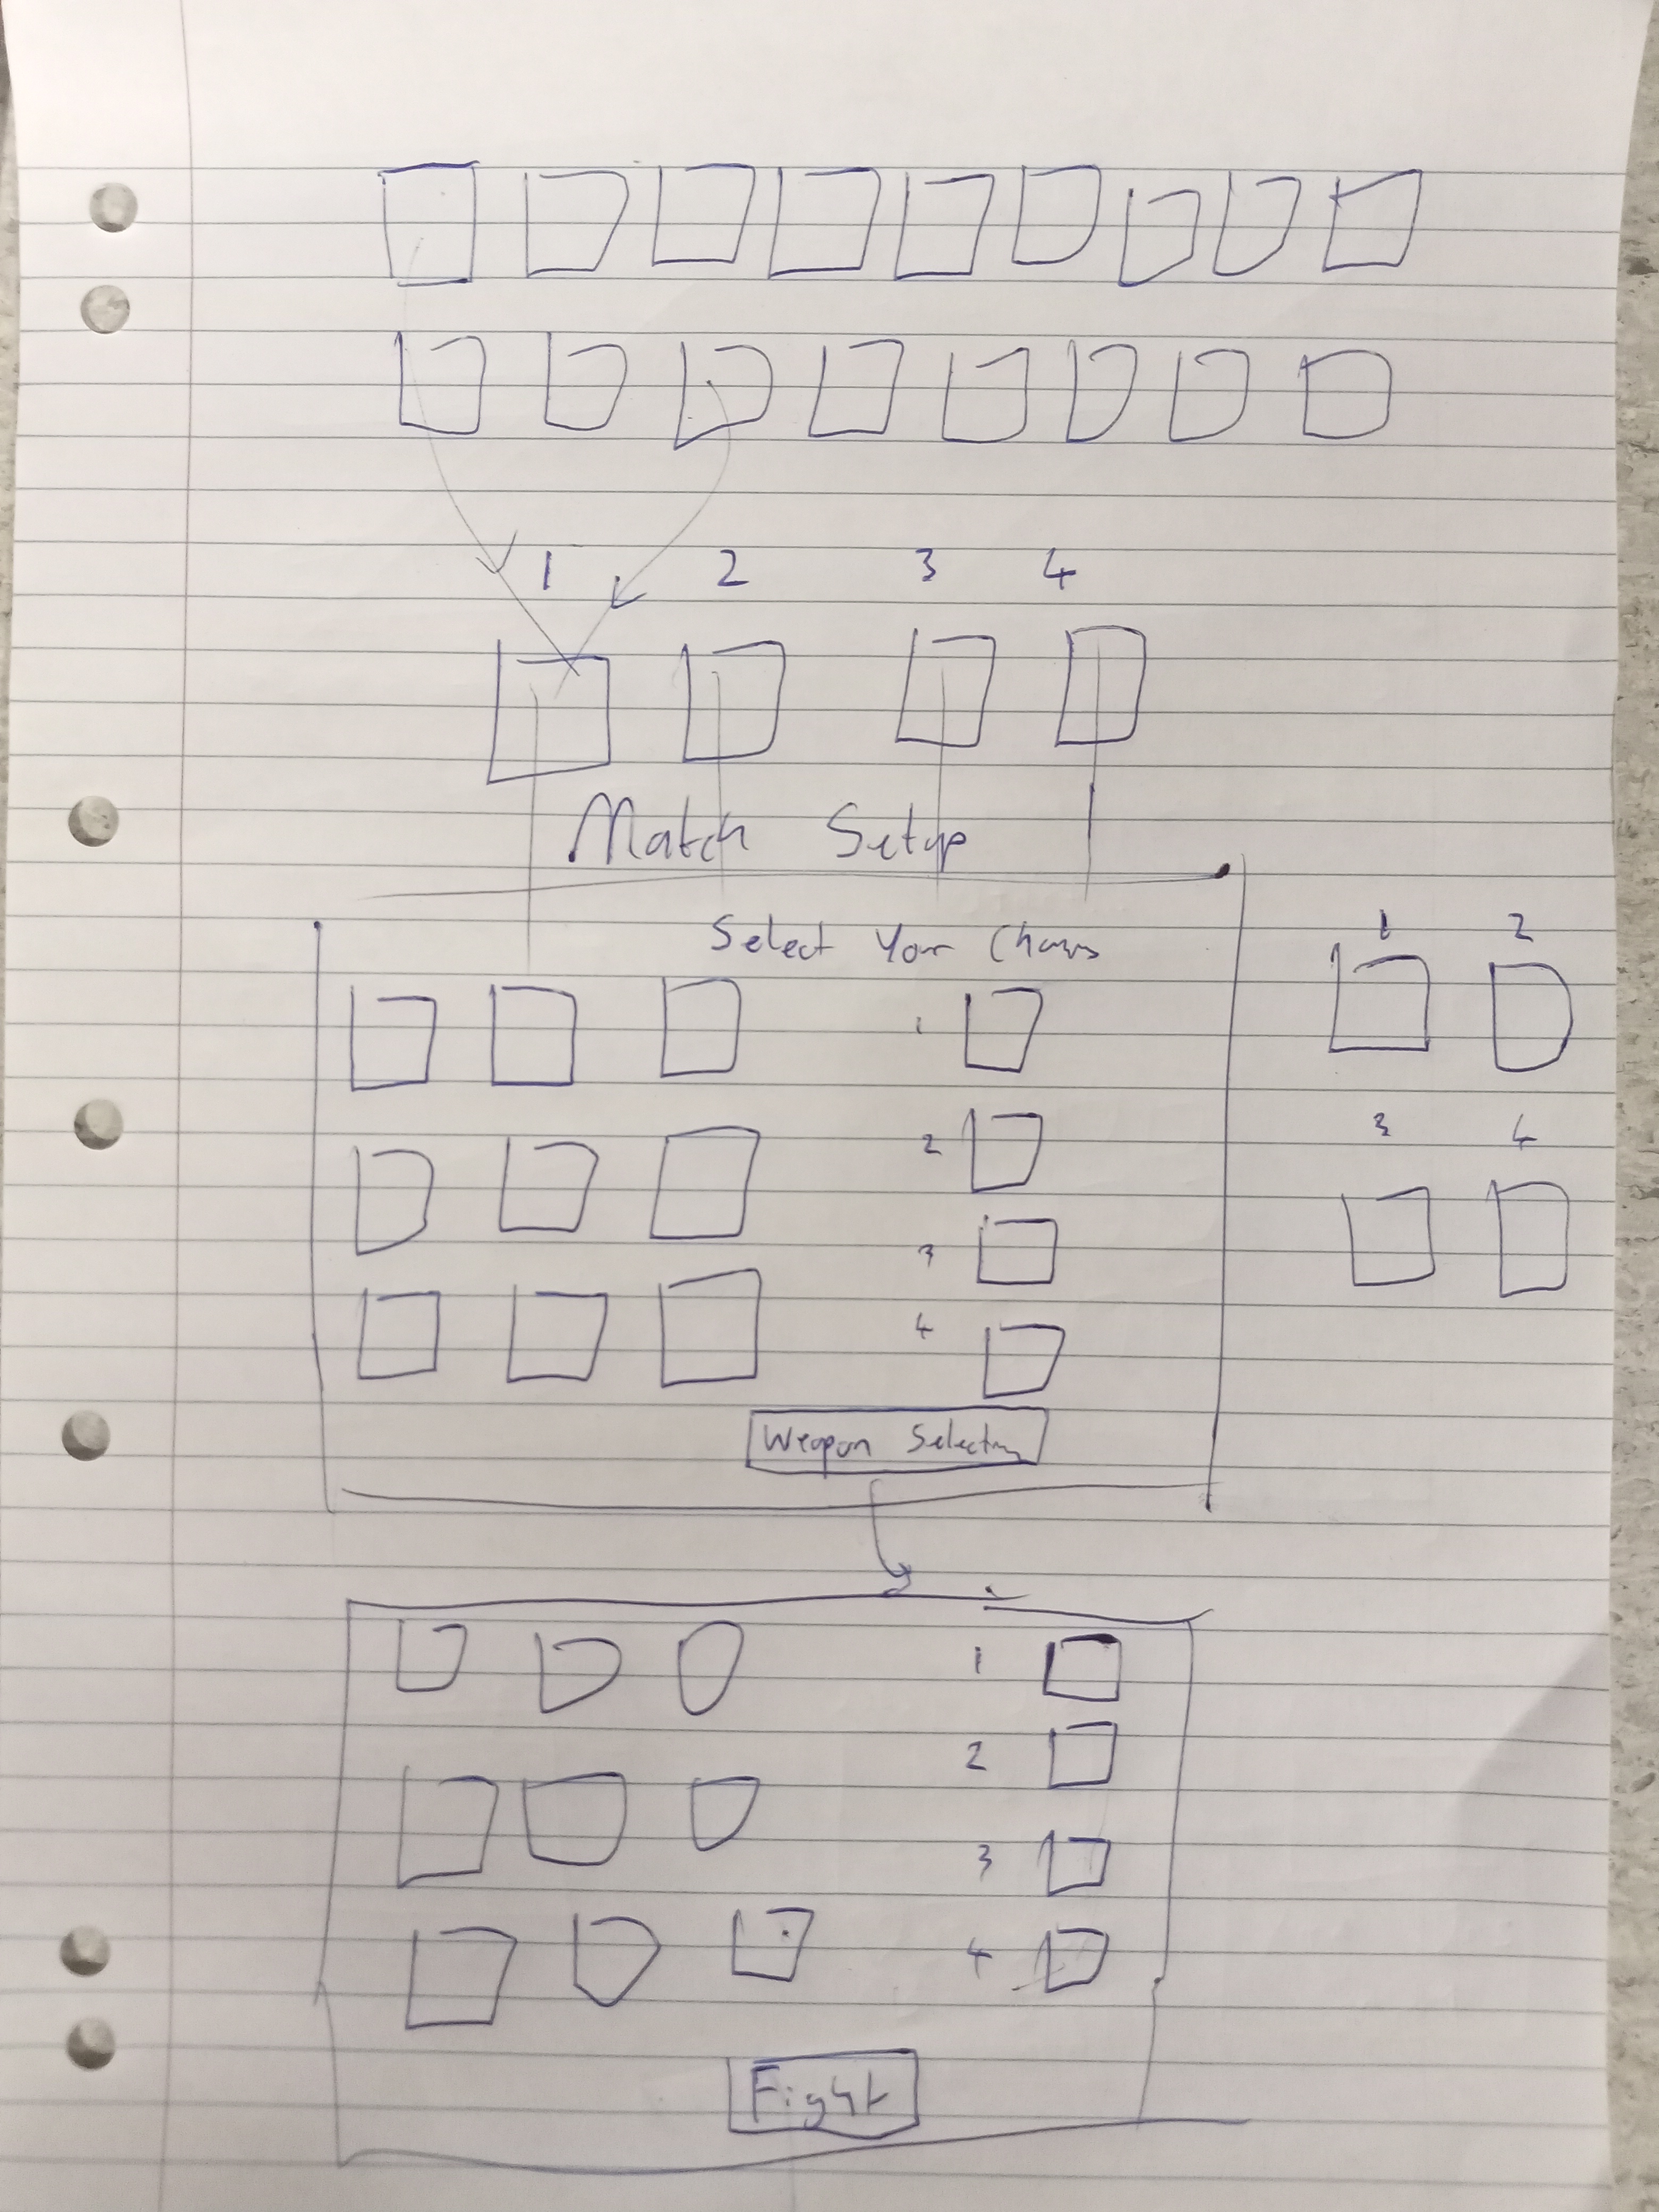 1 2 3 4
Match Setup
Select Your
1 2
1
2
3 4
3
4
Weapon Selection
1
2
3
4
Fight